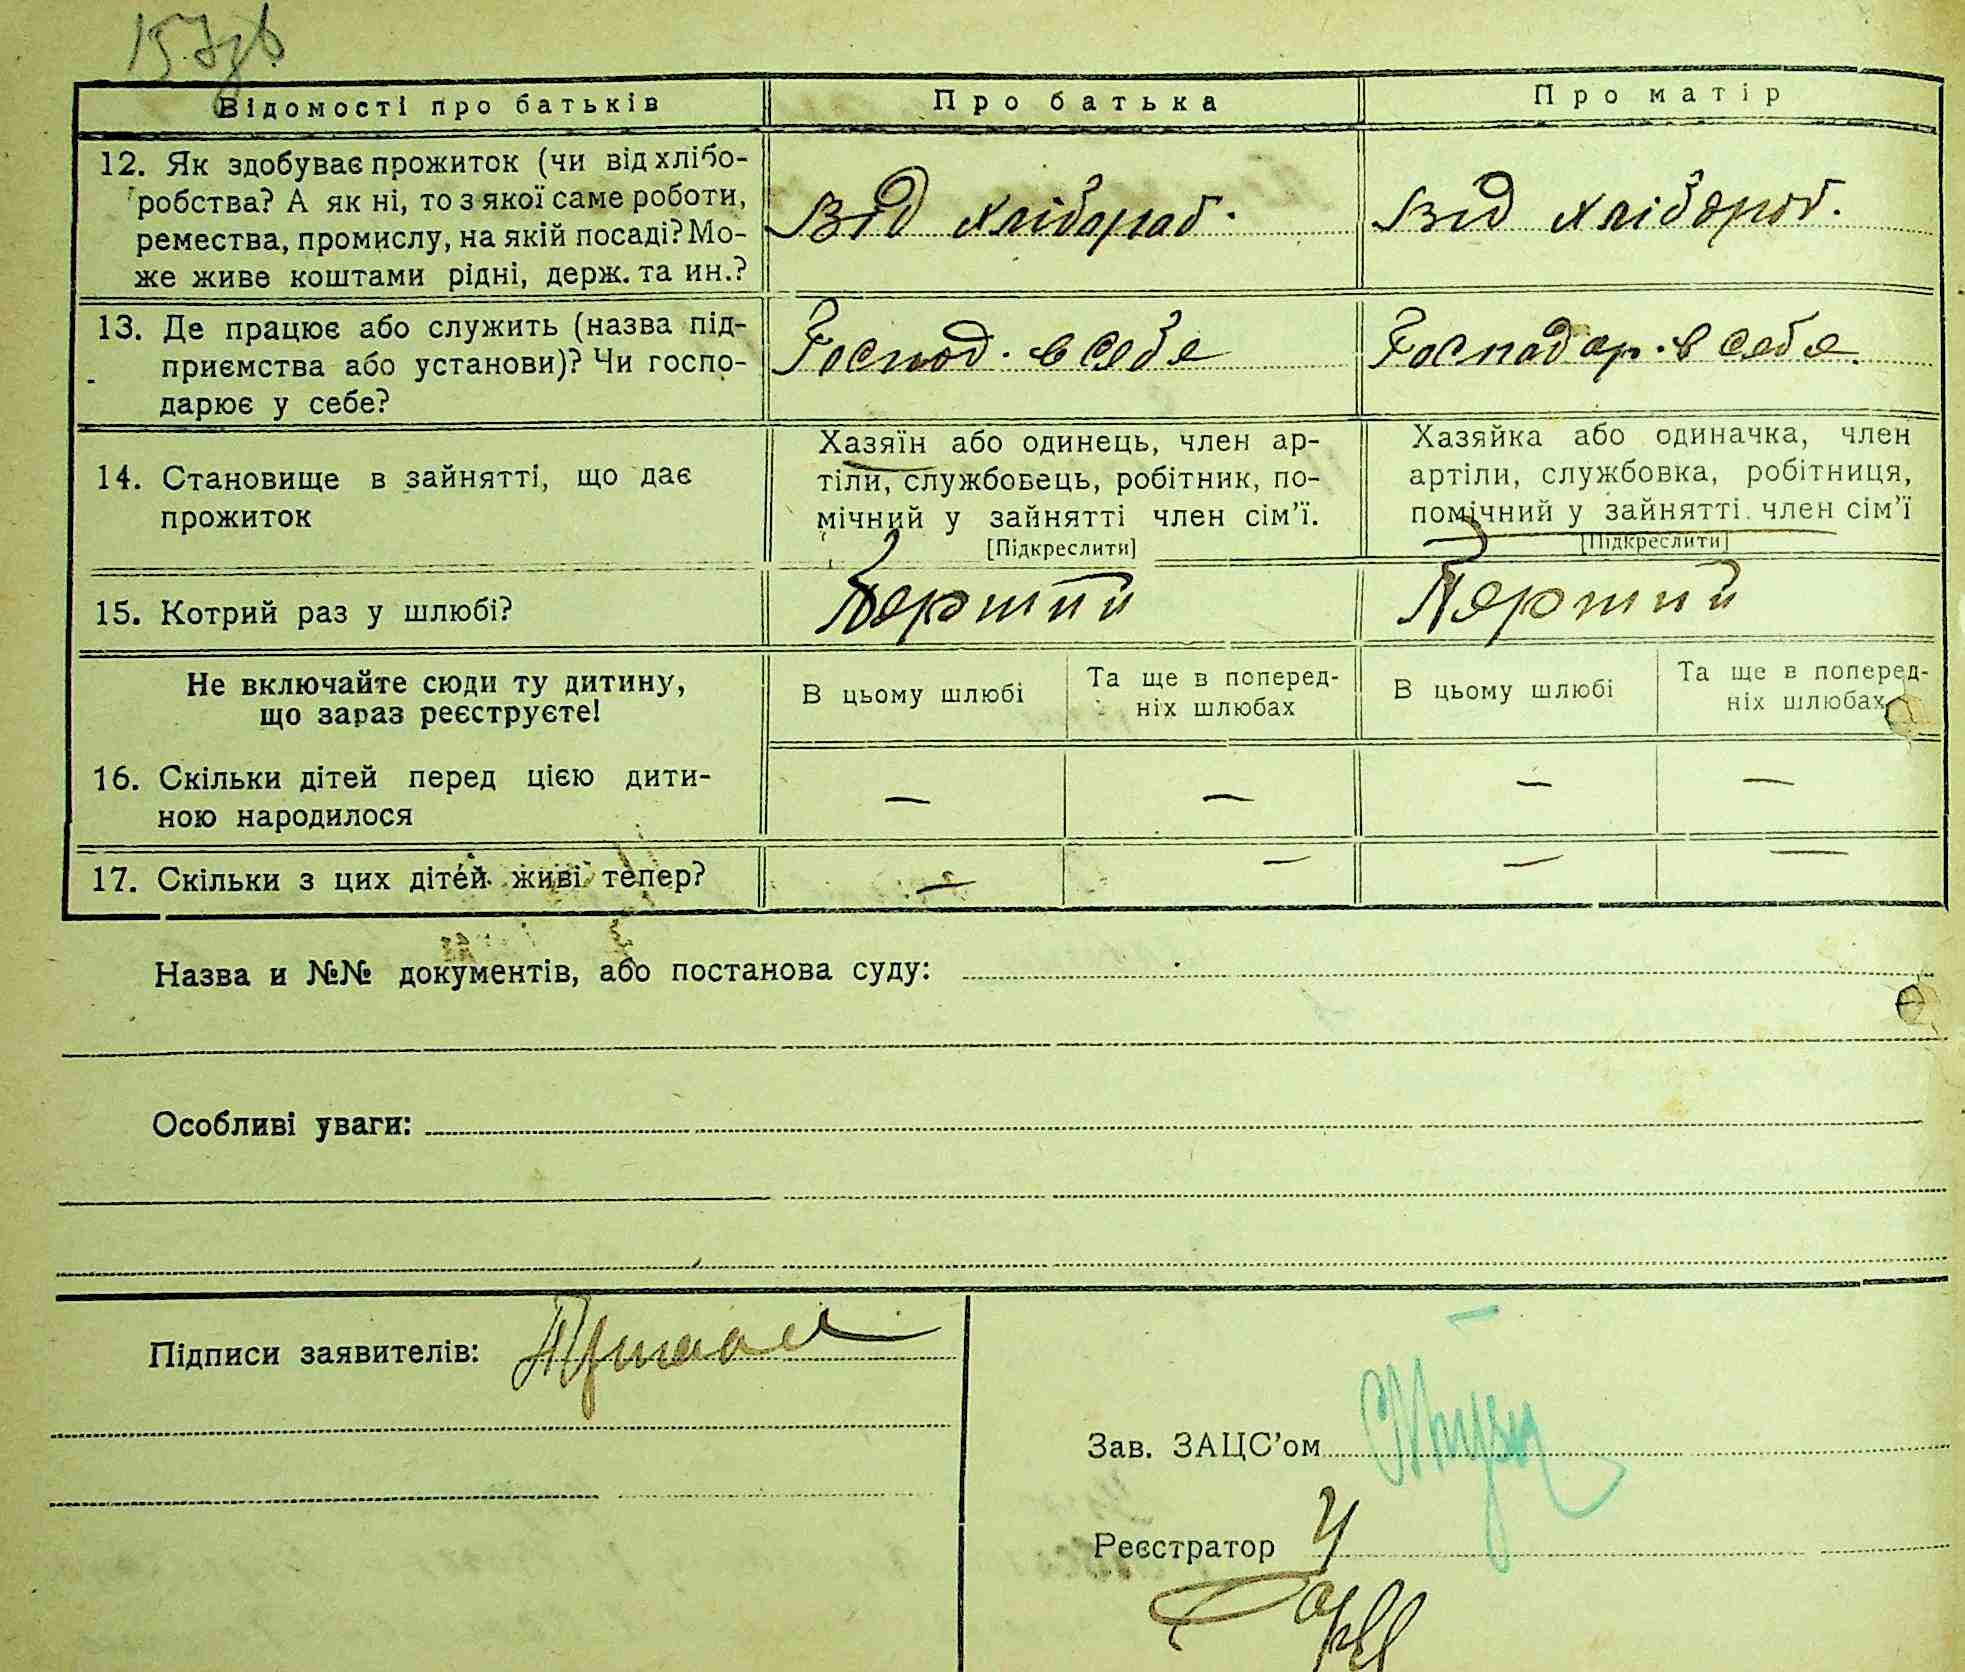 157зв
Відомості про батьків
Про батька
Про матір
12. Як здобуває прожиток (чи від хлібо-
робства? А як ні, то з якої саме роботи,
ремества, промислу, на якій посаді? Мо-
же живе коштами рідні, держ. та ин.?
Від хлібороб.
Від хлібороб.
13. Де працює або служить (назва під-
приємства або установи)? Чи госпо-
дарює у себе?
Господ. в себе
Господар. в себе.
14. Становище в зайнятті, що дає
прожиток
Хазяїн або одинець, член ар-
тіли, службовець, робітник, по-
мічний у зайнятті член сім'ї.
[Підкреслити]
Хазяйка або одиначка, член
артіли, службовка, робітниця,
помічний у зайнятті член сім'ї
[Підкреслити]
15. Котрий раз у шлюбі?
Перший
Перший
Не включайте сюди ту дитину,
що зараз реєструєте!
В цьому шлюбі
Та ще в поперед-
ніх шлюбах
В цьому шлюбі
Та ще в поперед-
ніх шлюбах
16. Скільки дітей перед цією дити-
ною народилося
— — — —
17. Скільки з цих дітей живі тепер?
— — — —
Назва и №№ документів, або постанова суду:
Особливі уваги:
Підписи заявителів:
Зав. ЗАЦС'ом
Реєстратор